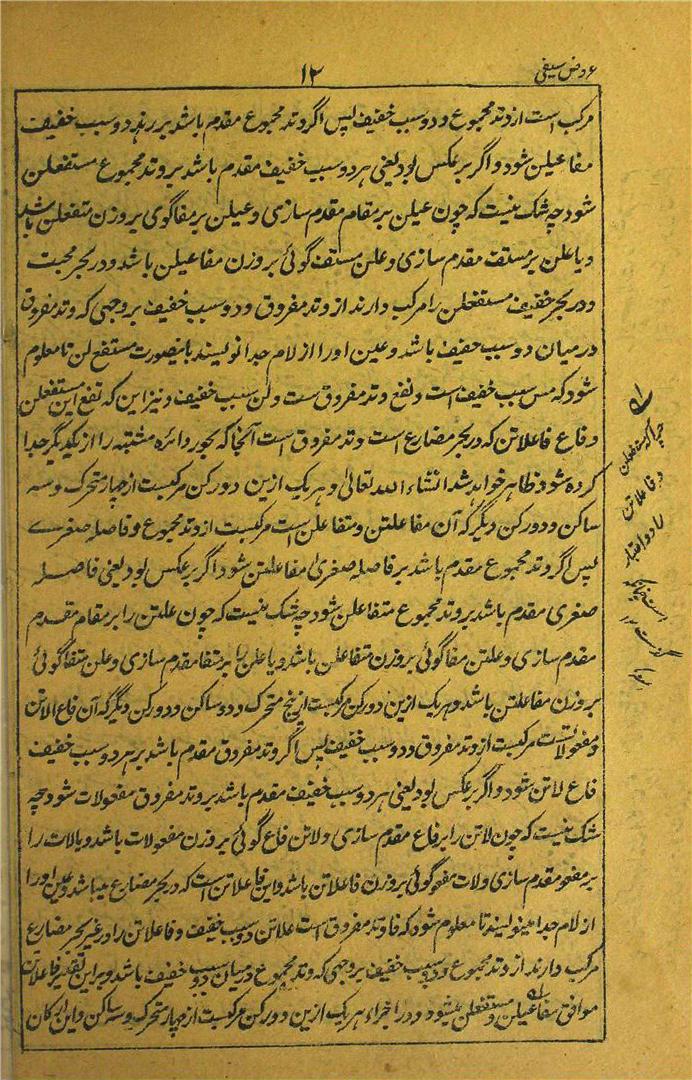 عروض سیفی
۱۲
مرکب است از وتد مجموع و دو سبب خفیف پس اگر وتد مجموع مقدم باشد بر هر دو سبب خفیف
مفاعیلن شود و اگر برعکس بود یعنی هر دو سبب خفیف مقدم باشد بر وتد مجموع مستفعلن
شود چه شک نیست که چون عیلن بر مقام مقدم سازی و عیلن بر مفا گوی بر وزن مستفعلن باشد
و یا علن بر مستف مقدم سازی و علن مستف گوئی بر وزن مفاعیلن باشد و در بحر مجتث
و در بحر خفیف مستفعلن را مرکب دارند از وتد مفروق و دو سبب خفیف بر وجهی که وتد مفروق
درمیان دو سبب خفیف باشد و عین او را از لام جدا نویسند باینصورت مستفع لن تا معلوم
شود که مس سبب خفیف است و تفع وتد مفروق ست و لن سبب خفیف و نیز این که تفع این مستفعلن
و فاع فاعلاتن که در بحر مضارع است وتد مفروق است آنجا که بحور دائره مشتبه را از یکدیگر جدا
کرده شود ظاهر خواهد شد انشاء الله تعالیٰ و هر یک ازین دو رکن مرکبست از چهار متحرک و سه
ساکن و دو رکن دیگر که آن مفاعلتن و متفاعلن است مرکبست از وتد مجموع و فاصله صغرے
پس اگر وتد مجموع مقدم باشد بر فاصله صغریٰ مفاعلتن شود اگر برعکس بود یعنی فاصله
صغری مقدم باشد بر وتد مجموع متفاعلن شود چه شک نیست که چون علتن را بر مقام مقدم
مقدم سازی و علتن مفا گوئی بر وزن متفاعلن باشد و یا علن را بر متفا مقدم سازی و علن متفا گوئی
بر وزن مفاعلتن باشد و هر یک ازین دو رکن مرکبست از پنج متحرک و دو ساکن و دو رکن دیگر که آن فاع لاتن
و مفعولات ست مرکبست از وتد مفروق و دو سبب خفیف پس اگر وتد مفروق مقدم باشد بر هر دو سبب خفیف
فاع لاتن شود و اگر برعکس بود یعنی هر دو سبب خفیف مقدم باشد بر وتد مفروق مفعولات شود چه
شک نیست که چون لاتن را بر فاع مقدم سازی و لاتن فاع گوئی بر وزن مفعولات باشد و یا لات را
بر مفعو مقدم سازی و لات مفعو گوئی بر وزن فاعلاتن باشد و این فاعلاتن است که در بحر مضارع میباشد و عین او را
از لام جدا مینویسند تا معلوم شود که فاع وتد مفروق است علاتن دو سبب خفیف و فاعلاتن را در غیر بحر مضارع
مرکب دارند از وتد مجموع و دو سبب خفیف بر وجهی که وتد مجموع درمیان دو سبب خفیف باشد و بر این تقدیر فاعلاتن
موافق مفاعیلن و مستفعلن میشود در اجزاء هر یک ازین دو رکن مرکبست از چهار متحرک و سه ساکن و این ارکان
چرا که مستفعلن
و فاعلاتن
را دو اعتبار